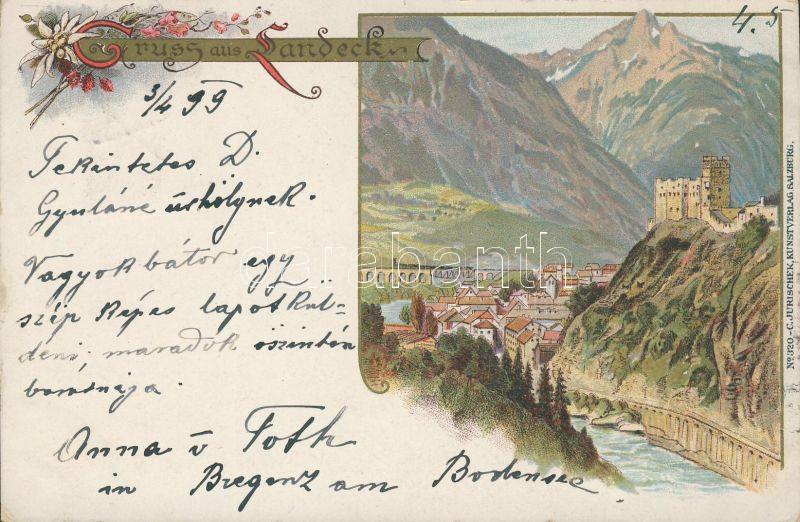 Gruss aus Landeck.
4. 5
3/4 99
Tekintetes D.
Gyuláné úrhölynek.
Vagyok bátor egy
szép képes lapot kül-
deni, maradok öszintén
barátnéja.
Anna v Toth
in Bregenz am Bodensee
darabanth.com
No. 320 - C. JURISCHEK, KUNSTVERLAG SALZBURG.